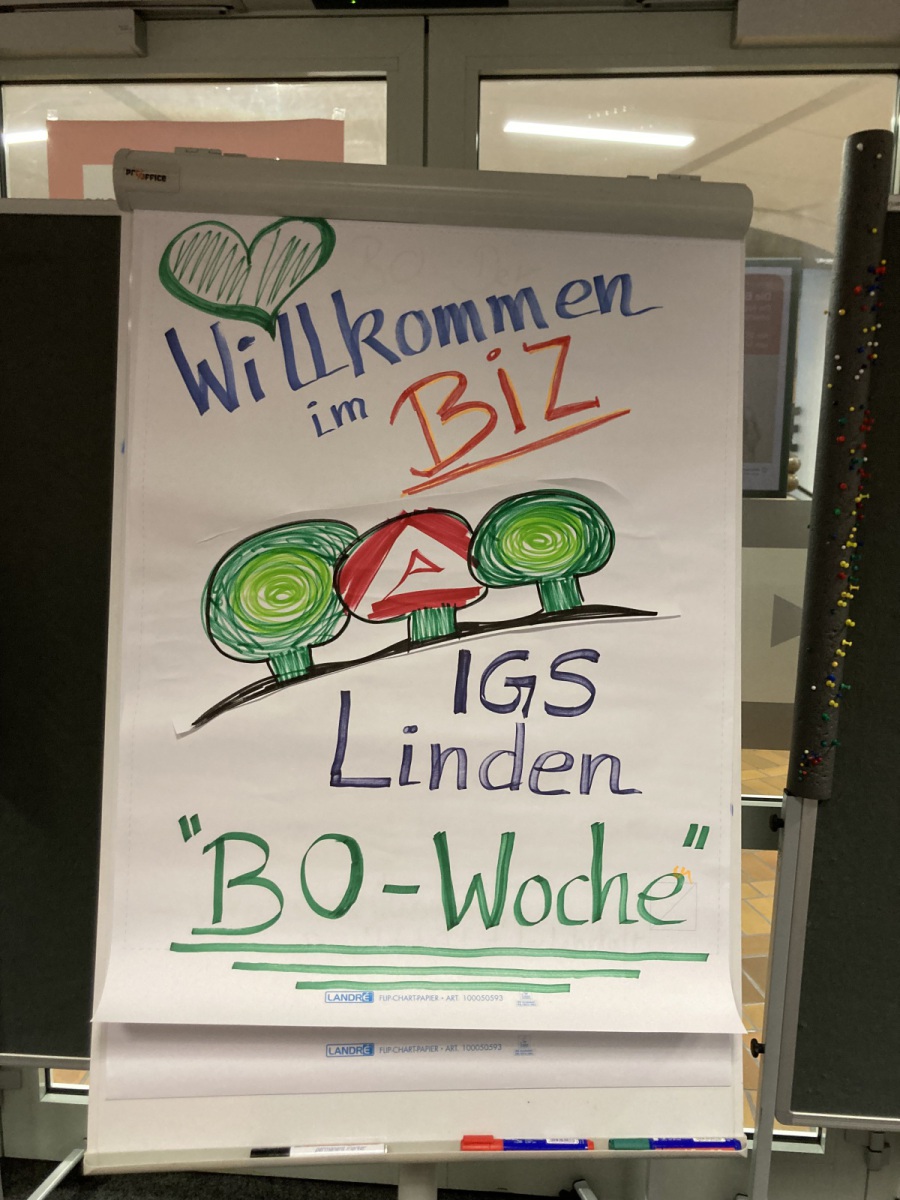 PRO OFFICE
Willkommen
im BiZ
IGS
Linden
"BO-Woche"
LANDRÉ FLIP-CHART-PAPIER • ART. 100050593
LANDRÉ FLIP-CHART-PAPIER • ART. 100050593
permanent marker